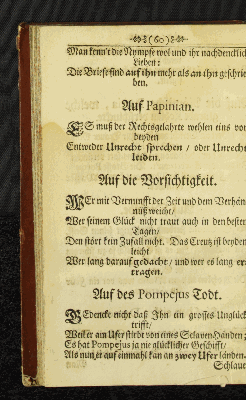 (60)
Man kennt die Nympfe wol und ihr nachdencklich
Lieben:
Die Briefe sind auf ihn mehr als an ihn geschrie
ben.
Auf Papinian.
ES muß der Rechtsgelahrte wehlen eins von
beyden
Entweder Unrecht sprechen / oder Unrecht
leiden.
Auf die Vorsichtigkeit.
WEr mit Vernunfft der Zeit und dem Verhän
nüß weicht/
Wer seinem Glück nicht traut auch in den besten
Tagen/
Den stört kein Zufall nicht. Das Creutz ist beyden
leicht
Wer lang darauf gedacht / und wer es lang er
tragen.
Auf des Pompejus Todt.
BEdencke nicht daß Ihn ein grosses Unglück
trifft/
Weil er am Ufer stirbt von eines Sclaven Händen;
Es hat Pompejus ja nie glücklicher geschifft/
Als nun er auf einmahl kan an zwey Ufer länden.
Schlaue